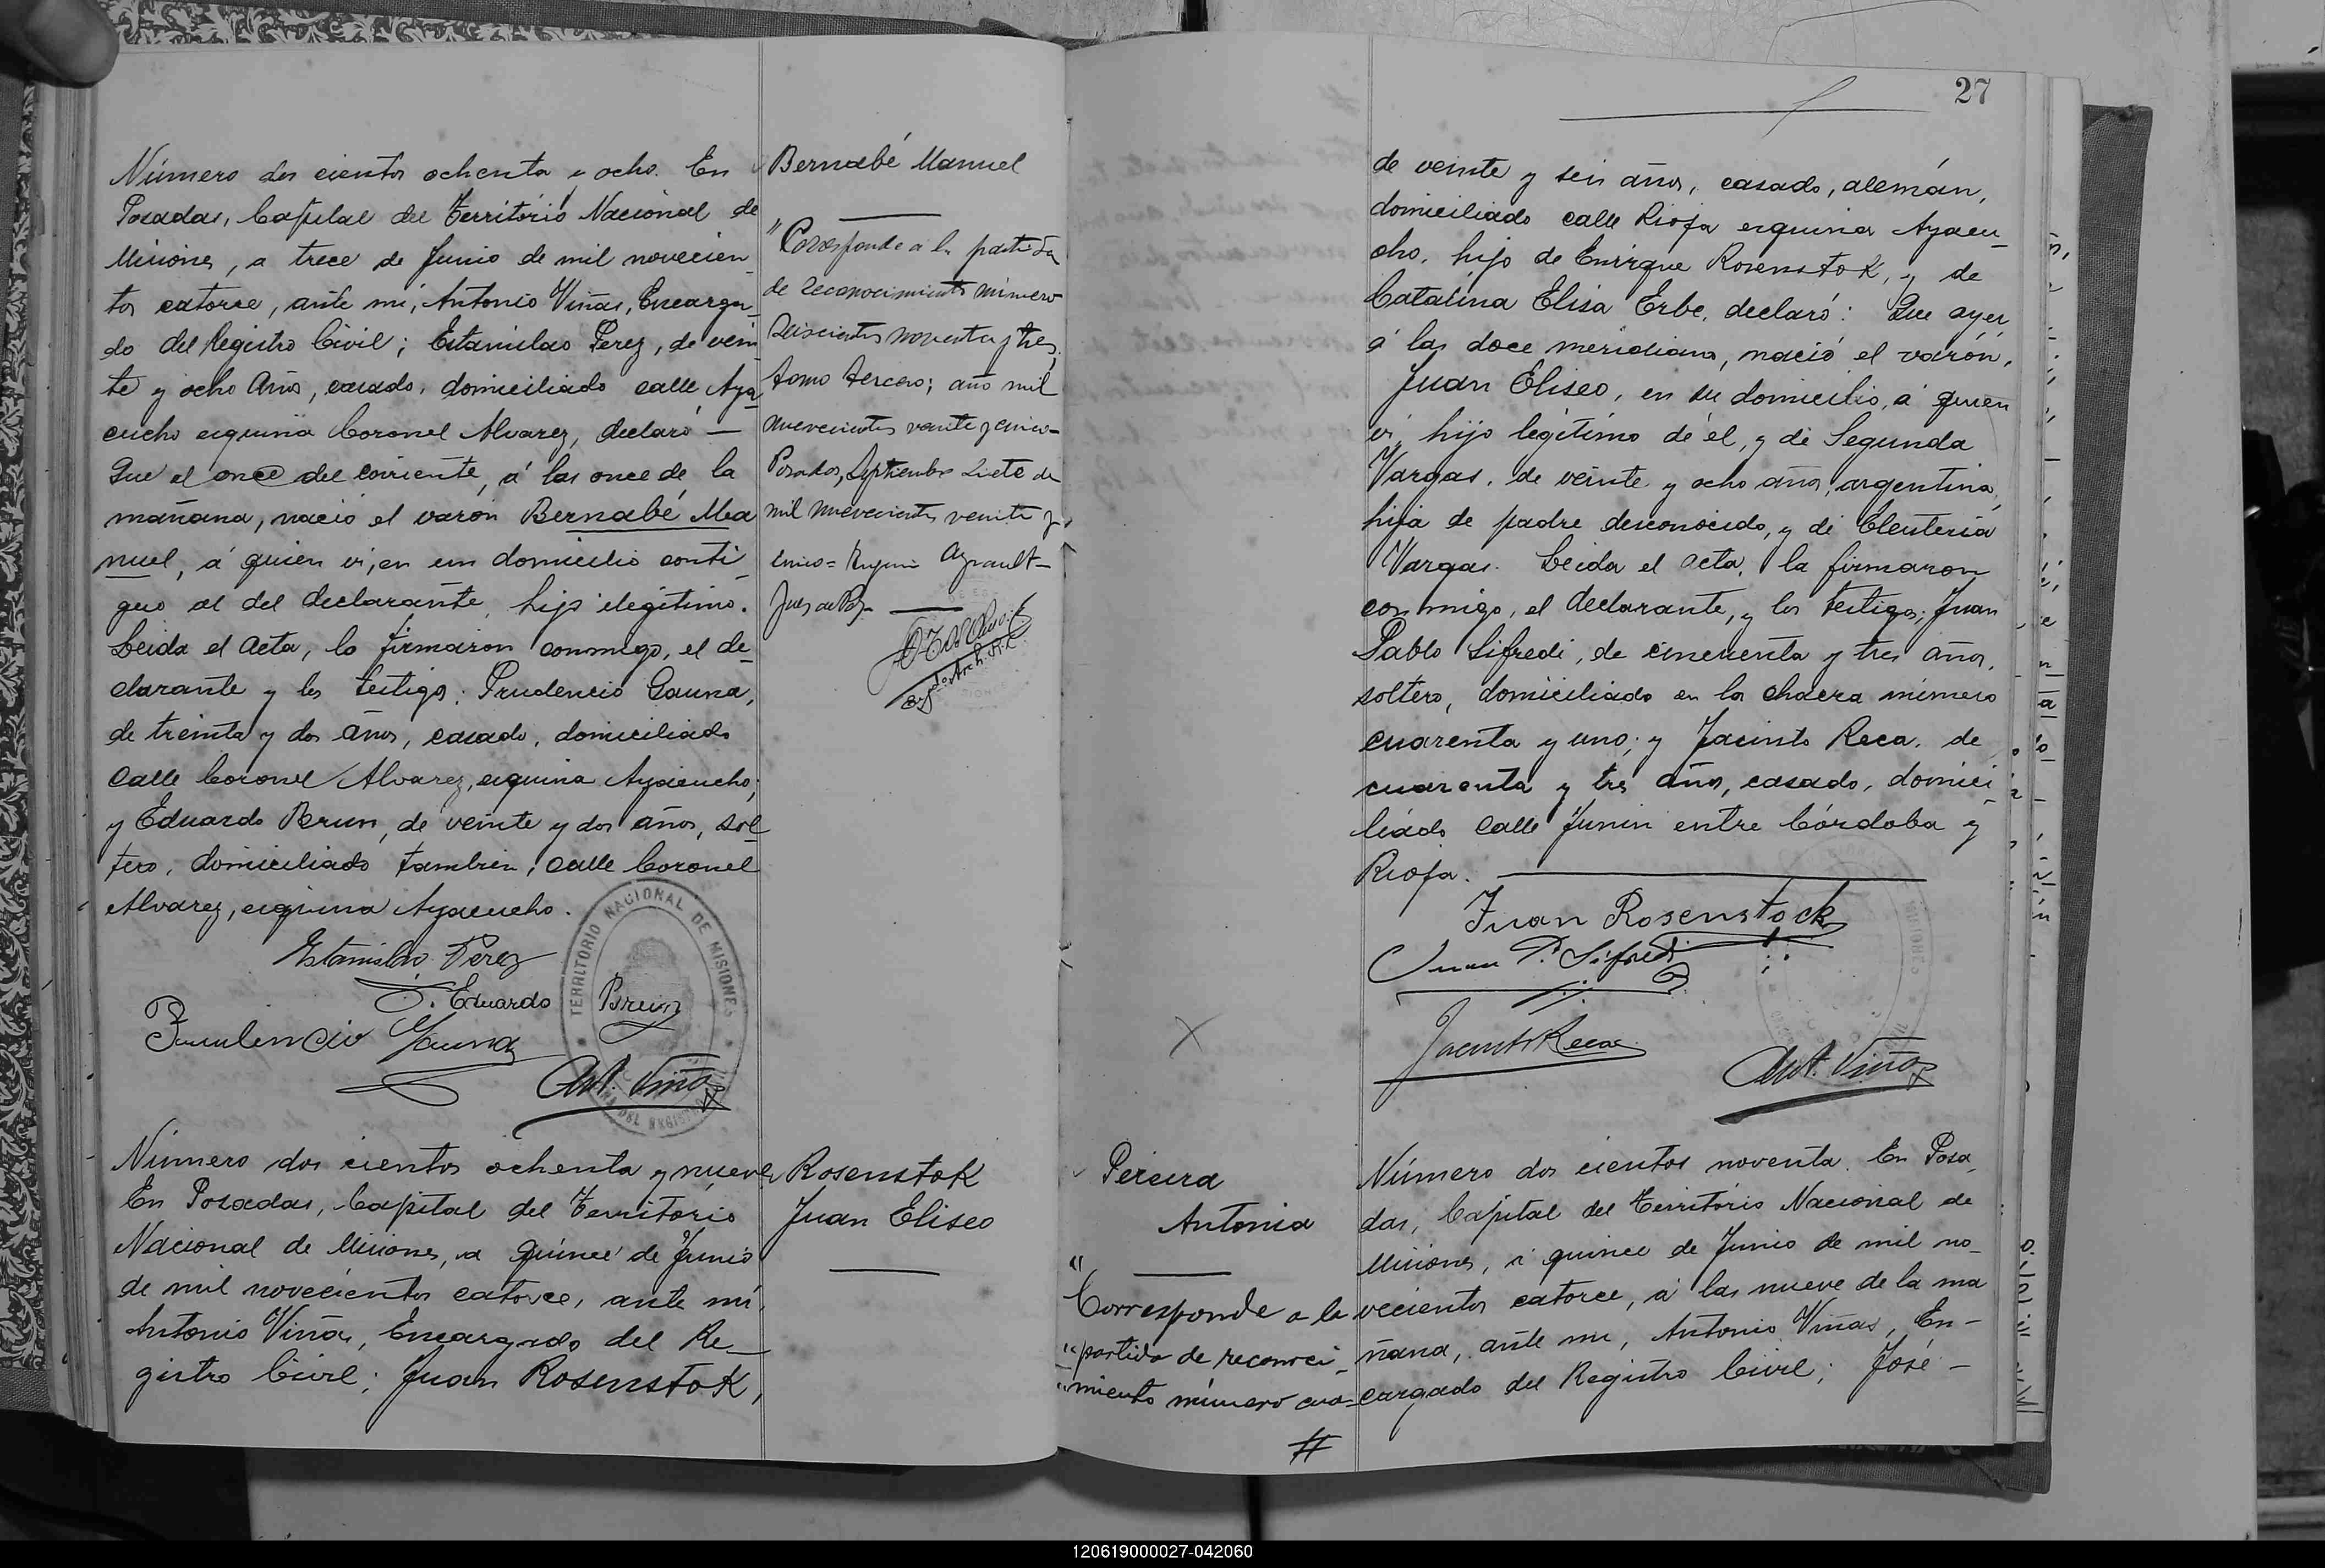 Número dos cientos ochenta y ocho. En
Posadas, Capital del Territorio Nacional de
Misiones, a trece de Junio de mil novecien_
tos catorce, ante mí, Antonio Viñas, Encarga_
do del Registro Civil; Estanislao Perez, de vein
te y ocho años, casado, domiciliado calle Aya_
cucho esquina Coronel Alvarez, declaró —
Que el once del corriente, á las once de la
mañana, nació el varón Bernabé Ma
nuel, á quien ví, en un domicilio conti_
guo al del declarante, hijo ilegítimo.
Leida el acta, la firmaron conmigo, el de_
clarante y los testigos: Prudencio Gauna,
de treinta y dos años, casado, domiciliado
calle Coronel Alvarez, esquina Ayacucho;
y Eduardo Brun, de veinte y dos años, sol_
tero, domiciliado también, calle Coronel
Alvarez, esquina Ayacucho.
Estanislao Perez
Eduardo Brun
Prudencio Gauna
Ant. Viñas
TERRITORIO NACIONAL DE MISIONES
Bernabé Manuel
"Corresponde a la partida
de reconocimiento número
doscientos noventa y tres,
tomo tercero; año mil
nuevecientos veinte y cinco-
Posadas, Septiembre siete de
mil nuevecientos veinte y
cinco=
Juez de Paz
Número dos cientos ochenta y nueve
En Posadas, Capital del Territorio
Nacional de Misiones, a quince de Junio
de mil novecientos catorce, ante mí,
Antonio Viñas, Encargado del Re_
gistro Civil; Juan Rosenstok,
Rosenstok
Juan Eliseo
27
de veinte y seis años, casado, alemán,
domiciliado calle Rioja esquina Ayacu_
cho, hijo de Enrique Rosenstok, y de
Catalina Elisa Erbe, declaró: Que ayer
á las doce meridiana, nació el varón,
Juan Eliseo, en su domicilio, á quien
ví, hijo legítimo de él, y de Segunda
Vargas, de veinte y ocho años, argentina,
hija de padre desconocido, y de Eleuteria
Vargas. Leida el acta, la firmaron
con migo, el declarante, y los testigos: Juan
Pablo Sifredi, de cincuenta y tres años,
soltero, domiciliado en la chacra número
cuarenta y uno; y Jacinto Reca, de
cuarenta y tres años, casado, domici_
liado calle Junin entre Córdoba y
Rioja.
Juan Rosenstock
Juan P. Sifredi
Jacinto Reca
Ant. Viñas
Pereira
Antonia
"Corresponde a la
"partida de reconoci_
"miento número cua=
#
Número dos cientos noventa. En Posa_
das, Capital del Territorio Nacional de
Misiones, á quince de Junio de mil no_
vecientos catorce, á las nueve de la ma
ñana, ante mí, Antonio Viñas, En-
cargado del Registro Civil; José —
120619000027-042060